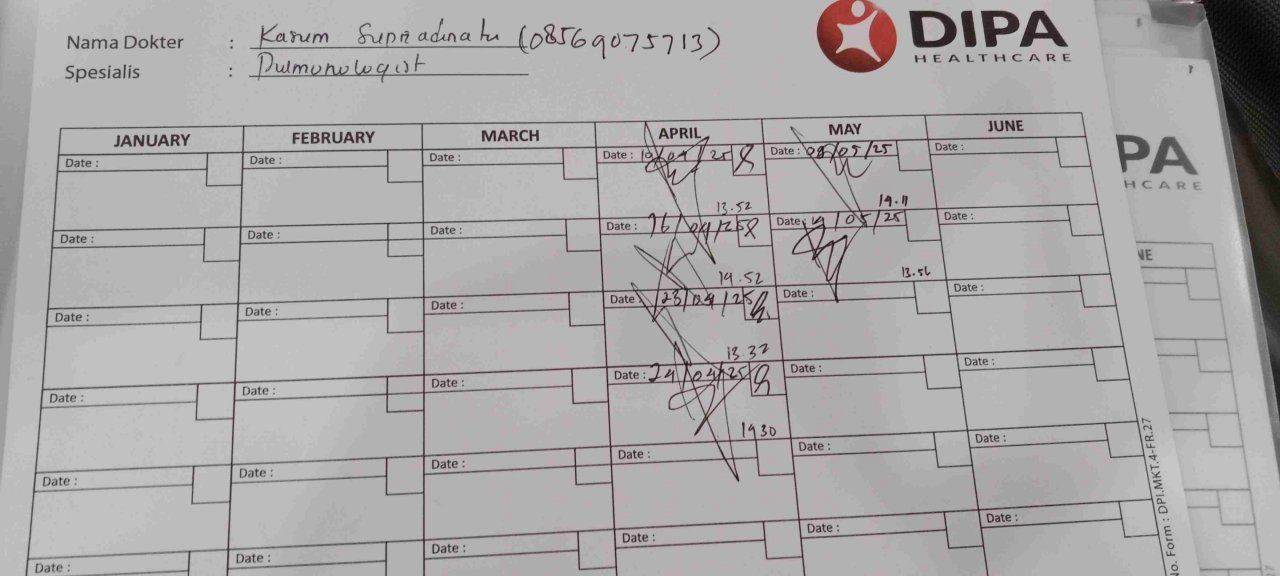 Nama Dokter : Karum Supriadinatu (08569075713)
Spesialis : Pulmonologist
DIPA
HEALTHCARE
JANUARY FEBRUARY MARCH APRIL MAY JUNE
Date : Date : Date : Date : 10/04/25 Date : 08/05/25 Date :
13.52 19.11
Date : Date : Date : Date : 16/04/25 Date : 19/05/25 Date :
19.52 13.56
Date : Date : Date : Date : 23/04/25 Date : Date :
13.32
Date : Date : Date : Date : 24/04/25 Date : Date :
1930
Date : Date : Date : Date : Date : Date :
Date : Date : Date : Date : Date : Date :
No. Form : DPI.MKT.4-FR.27
PA
HCARE
NE